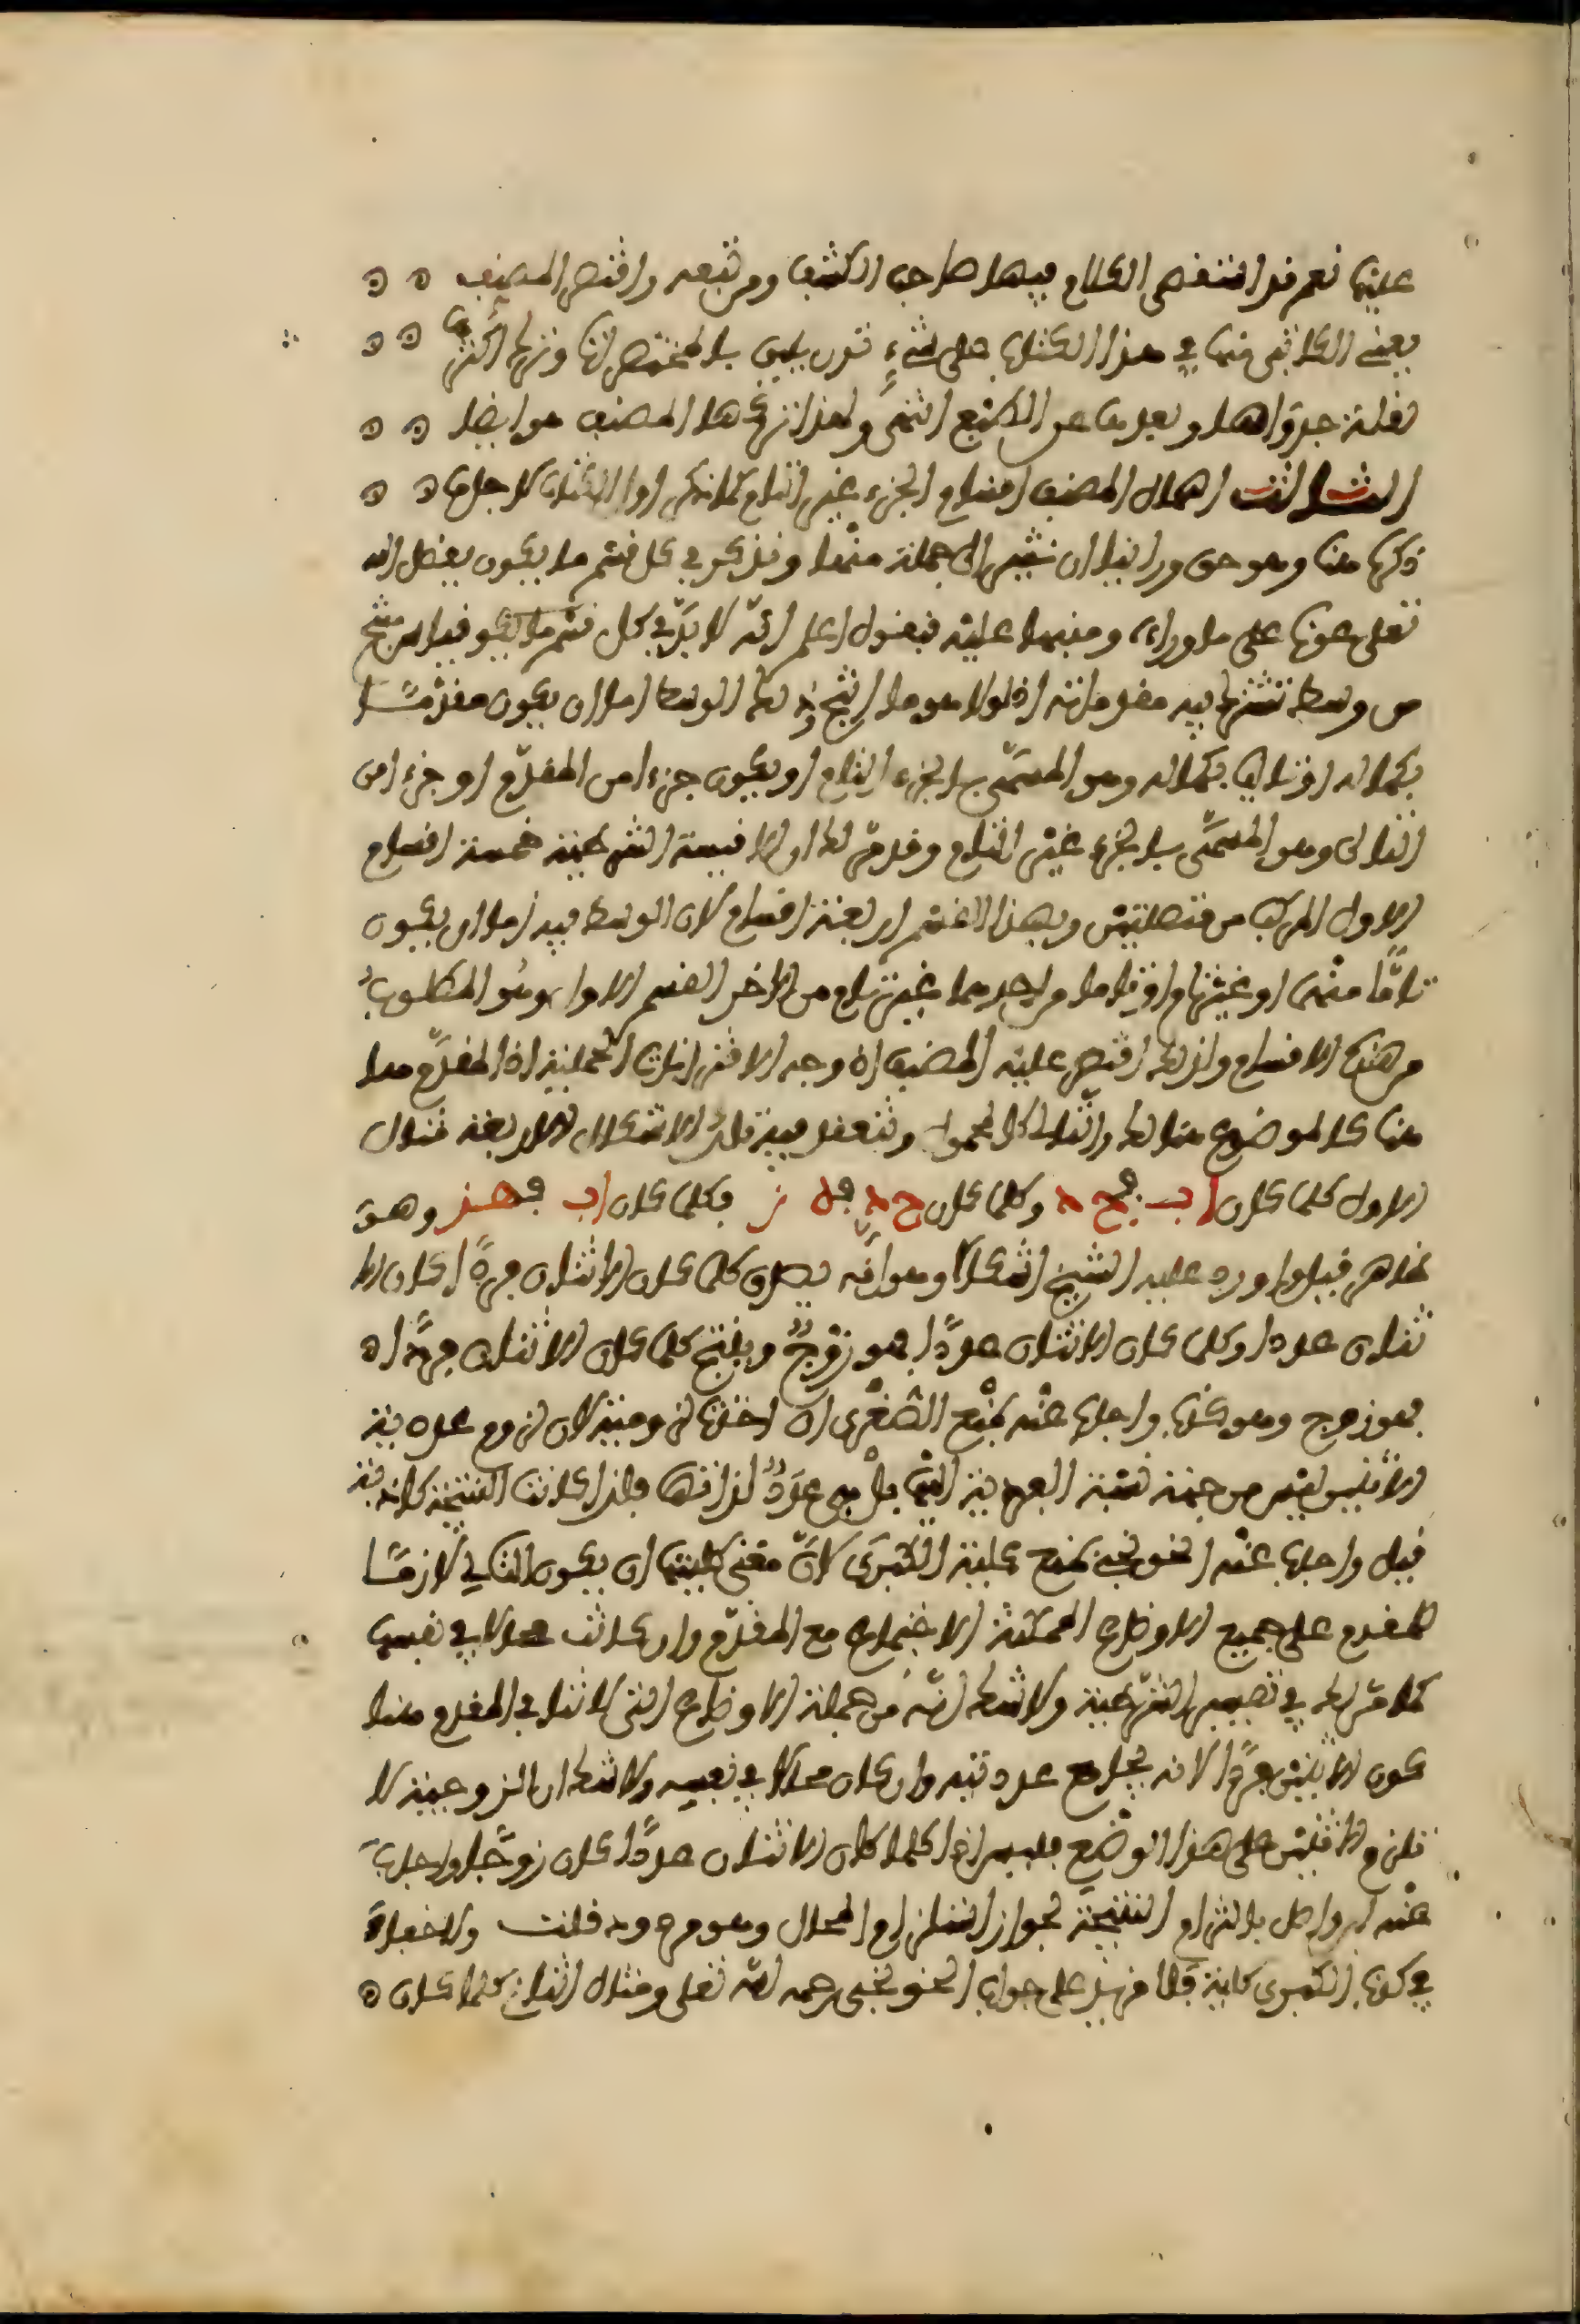 عليها نعم قد استقصى الكلام فيها صاحب الكشف ومن تبعه واقتصر المصنف
يعني الكاتبي منها في هذا الكتاب على شيء نزر يليق بالمختصرات وترك أكثرها
لقلة جدواها وبعدها عن الطبع انتهى ولهذا تركها المصنف هو ايضا
الثالث اهمال المصنف اقسام الجزء غير التام كما ذكر اوا كلاجلها
ذكرها هنا وهو حق ورأينا ان نشير الى جملة منها ونذكر في كل قسم ما يكون بفضل الله
تعلى عونا على ما وراءه ومنبها عليه فنقول اعلم انه لا بد في كل قسم ما يكون قياس منتج
من وسط تشترك فيه مقدماته اذ لولا هو ما انتج وذلك الوسط اما ان يكون مقدما
بكماله او تاليا بكماله وهو المسمى بالجزء التام او يكون جزءا من المقدم او جزءا من
التالى وهو المسمى بالجزء غير التام وقد مر لك ان الاقيسة الشرطية خمسة اقسام
الاول المركب من متصلتين وبهذا القسم اربعة اقسام لان الوسط فيه اما ان يكون
تاما منهما او غير تام او تاما من احدهما غير تام من الاخر القسم الاول وهو المطلوب
من هذه الاقسام ولذلك اقتصر عليه المصنف اذ وجه الاقترانات الحملية اذ المقدم هنا
هنا كالموضوع هنالك والتالى كالمحمول وتنعقد فيه تلك الاشكال الاربعة مثال
الاول كلما كان اب فج د وكلما كان ج د فه ز فكلما كان اب فهـز وهو
ظاهر قيل واورد عليه الشيخ اشكالا وهو انه يصدق كلما كان الاثنان فردا كان الا
ثنان عددا وكلما كان الاثنان عددا فهو زوج وينتج كلما كان الاثنان فردا
فهو زوج وهو كذب واجاب عنه بمنع الصغرى ان اخذت لزومية لان لزوم عددية
الاثنين ليس من جهة نسبة الفردية اليها بل هي عدد لذاتها فلذا كانت النتيجة كاذبة
قيل واجاب عنه الخونجي بمنع كلية الكبرى لان معنى كليتها ان يكون التالي لازما
للمقدم على جميع الاوضاع الممكنة الاجتماع مع المقدم وان كانت محالا في نفسها
كما مر لك في تفسير الشرطية ولا شك انه من جملة الاوضاع التي لا تنافي المقدم هنا
كون الاثنين فردا لانه يجامع عدديته وان كان محالا في نفسه ولا شك ان الزوجية لا
تلزم الاثنين على هذا الوضع فليس اذا كلما كان الاثنان عددا كان زوجا واجاب
عنه ابن واصل بالتزام النتيجة لجواز استلزام المحال وهو مردود قلت ولا خفاء
في كون الكبرى كاذبة فلا مزيد على جواب الخونجي رحمه الله تعلى ومثال الثاني كلما كان